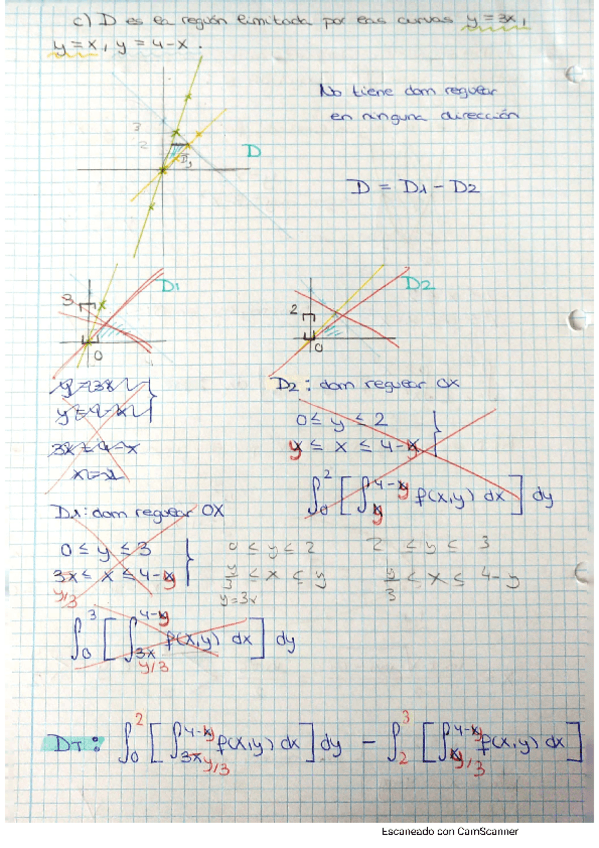 c) D es la región limitada por las curvas y = 3x,
y = x, y = 4-x.
No tiene dom regular
en ninguna dirección
3
2
D
D1
D = D1 - D2
D1
3
0
D2
2
0
y = 4-x
3x = 4-x
D2: dom regular OX
0 ≤ y ≤ 2
y ≤ x ≤ 4-y
∫₀² [ ∫ᵧ⁴⁻ʸ f(x,y) dx ] dy
D1: dom regular OX
0 ≤ y ≤ 3
3x ≤ x ≤ 4-y
y/3
0 ≤ y ≤ 2
y/3 ≤ x ≤ y
y=3x
2 ≤ y ≤ 3
y/3 ≤ x ≤ 4-y
∫₀³ [ ∫ 3x y/3 4-y f(x,y) dx ] dy
DT: ∫₀² [ ∫ 3x y/3 4-y f(x,y) dx ] dy - ∫₂³ [ ∫ y/3 4-y f(x,y) dx ]
Escaneado con CamScanner